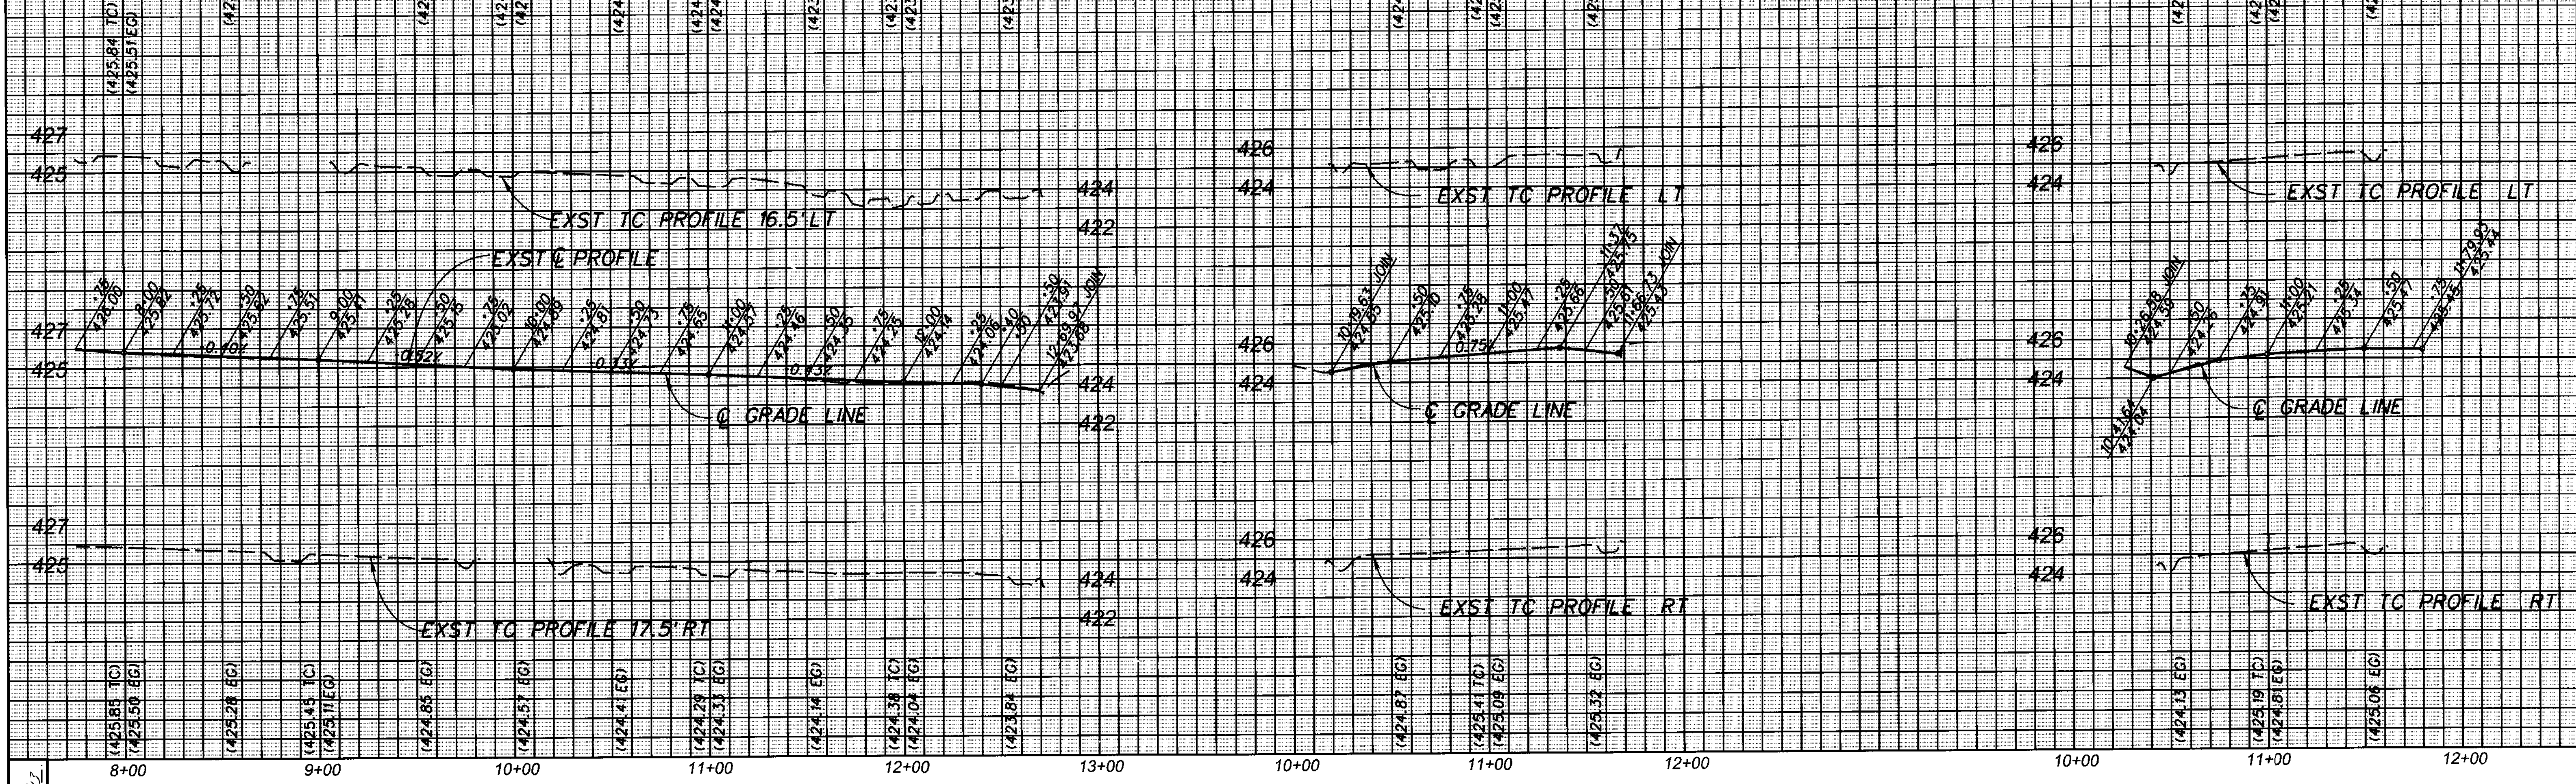 (425.84 TC)
(425.51 EG)
427
425
424
422
EXST TC PROFILE 16.5' LT
EXST ℄ PROFILE
427
425
424
422
+.75
426.00
8+00
425.82
+.25
425.72
+.50
425.62
+.75
425.51
9+00
425.41
+.25
425.28
+.50
425.15
+.75
425.02
10+00
424.89
+.25
424.81
+.50
424.73
+.75
424.65
11+00
424.57
+.25
424.46
+.50
424.35
+.75
424.25
12+00
424.14
+.25
424.06
+.40
+.50
423.91
12+69.97 JOIN
423.68
-0.40%
-0.52%
-0.33%
-0.43%
℄ GRADE LINE
427
425
424
422
EXST TC PROFILE 17.5' RT
(425.85 TC)
(425.50 EG)
(425.28 EG)
(425.45 TC)
(425.11 EG)
(424.85 EG)
(424.57 EG)
(424.41 EG)
(424.29 TC)
(424.33 EG)
(424.14 EG)
(424.38 TC)
(424.04 EG)
(423.84 EG)
8+00
9+00
10+00
11+00
12+00
13+00
426
424
EXST TC PROFILE LT
426
424
10+19.63 JOIN
424.55
+.50
425.10
+.75
425.28
11+00
425.47
+.25
425.66
11+37
425.75
+.50
425.61
11+66.73 JOIN
425.43
0.75%
℄ GRADE LINE
426
424
EXST TC PROFILE RT
(424.87 EG)
(425.41 TC)
(425.09 EG)
(425.32 EG)
10+00
11+00
12+00
426
424
EXST TC PROFILE LT
426
424
10+26.88 JOIN
424.59
10+41.64
424.04
+.50
424.26
+.75
424.91
11+00
425.21
+.25
425.34
+.50
425.47
+.75
425.45
11+79.95
425.44
℄ GRADE LINE
426
424
EXST TC PROFILE RT
(424.13 EG)
(425.19 TC)
(424.81 EG)
(425.06 EG)
10+00
11+00
12+00